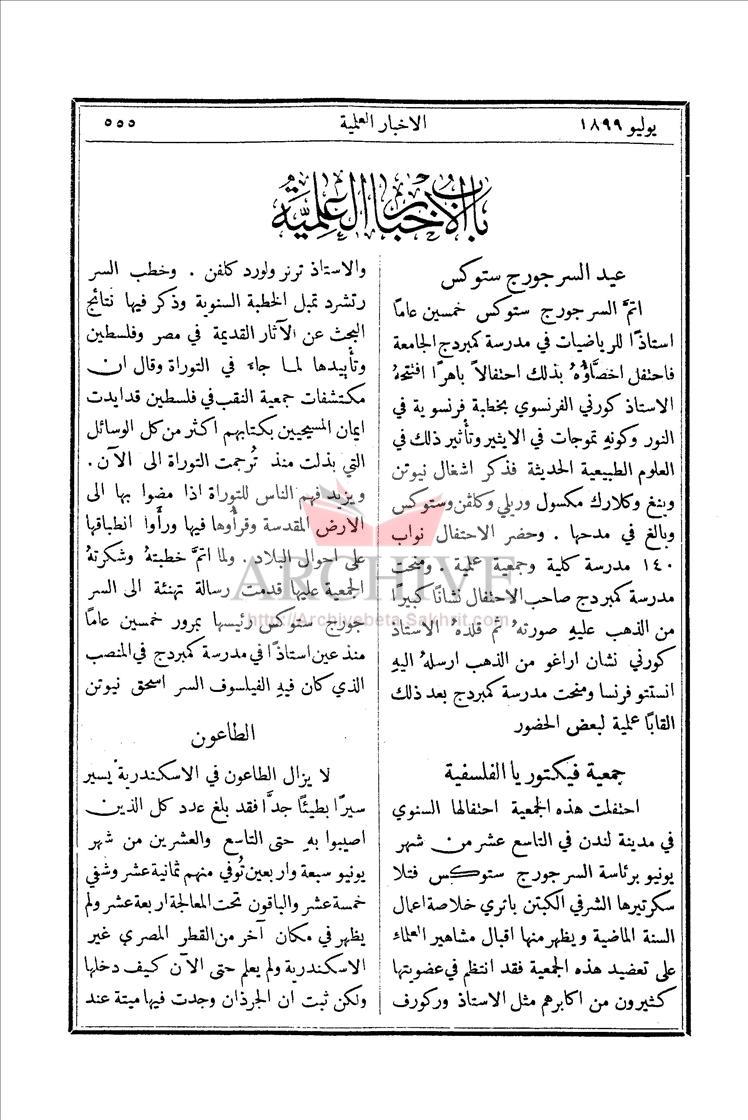 يوليو ١٨٩٩
الاخبار العلمية
٥٥٥
باب الاخبار العلمية
عيد السر جورج ستوكس
اتمَّ السر جورج ستوكس خمسين عامًا
استاذًا للرياضيات في مدرسة كمبردج الجامعة
فاحتفل اخصَّاؤُهُ بذلك احتفالاً باهرًا افتتحهُ
الاستاذ كورني الفرنسوي بخطبة فرنسوية في
النور وكونهِ تموجات في الايثير وتأثير ذلك في
العلوم الطبيعية الحديثة فذكر اشغال نيوتن
وينغ وكلارك مكسول وريلي وكلفن وستوكس
وبالغ في مدحها . وحضر الاحتفال نواب
١٤٠ مدرسة كلية وجمعية علمية . ومنحت
مدرسة كمبردج صاحب الاحتفال نشانًا كبيرًا
من الذهب عليهِ صورتهُ ثم قلدهُ الاستاذ
كورني نشان اراغو من الذهب ارسلهُ اليهِ
انستتو فرنسا ومنحت مدرسة كمبردج بعد ذلك
القابًا علمية لبعض الحضور
جمعية فيكتوريا الفلسفية
احتفلت هذه الجمعية احتفالها السنوي
في مدينة لندن في التاسع عشر من شهر
يونيو برئاسة السر جورج ستوكس فتلا
سكرتيرها الشرفي الكبتن باتري خلاصة اعمال
السنة الماضية ويظهر منها اقبال مشاهير العلماء
على تعضيد هذه الجمعية فقد انتظم في عضويتها
كثيرون من اكابرهم مثل الاستاذ وركورف
والاستاذ ترنر ولورد كلفن . وخطب السر
رتشرد تمبل الخطبة السنوية وذكر فيها نتائج
البحث عن الآثار القديمة في مصر وفلسطين
وتأييدها لما جاء في التوراة وقال ان
مكتشفات جمعية النقب في فلسطين قد ايدت
ايمان المسيحيين بكتابهم اكثر من كل الوسائل
التي بذلت منذ تُرجمت التوراة الى الآن .
ويزيد فهم الناس للتوراة اذا مضوا بها الى
الارض المقدسة وقرأُوها فيها ورأَوا انطباقها
على احوال البلاد . ولما اتمَّ خطبتهُ وشكرتهُ
الجمعية عليها قدمت رسالة تهنئة الى السر
جورج ستوكس رئيسها بمرور خمسين عامًا
منذ عين استاذًا في مدرسة كمبردج في المنصب
الذي كان فيهِ الفيلسوف السر اسحق نيوتن
الطاعون
لا يزال الطاعون في الاسكندرية يسير
سيرًا بطيئًا جدًّا فقد بلغ عدد كل الذين
اصيبوا بهِ حتى التاسع والعشرين من شهر
يونيو سبعة واربعين تُوفي منهم ثمانية عشر وشفي
خمسة عشر والباقون تحت المعالجة اربعة عشر ولم
يظهر في مكان آخر من القطر المصري غير
الاسكندرية ولم يعلم حتى الآن كيف دخلها
ولكن ثبت ان الجرذان وجدت فيها ميتة عند
ARCHIVE
http://Archivebeta.Sakhrit.com